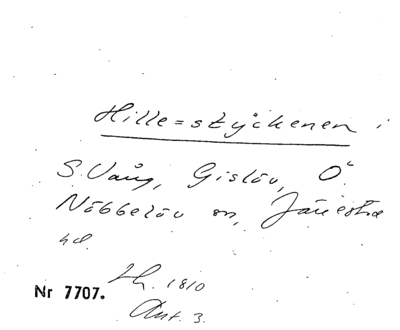 Hille=styckenen i
S. Vång, Gislöv, Ö.
Nöbbelöv sn, Järrestad
hd.
Lh. 1810
Ant. 3.
Nr 7707.